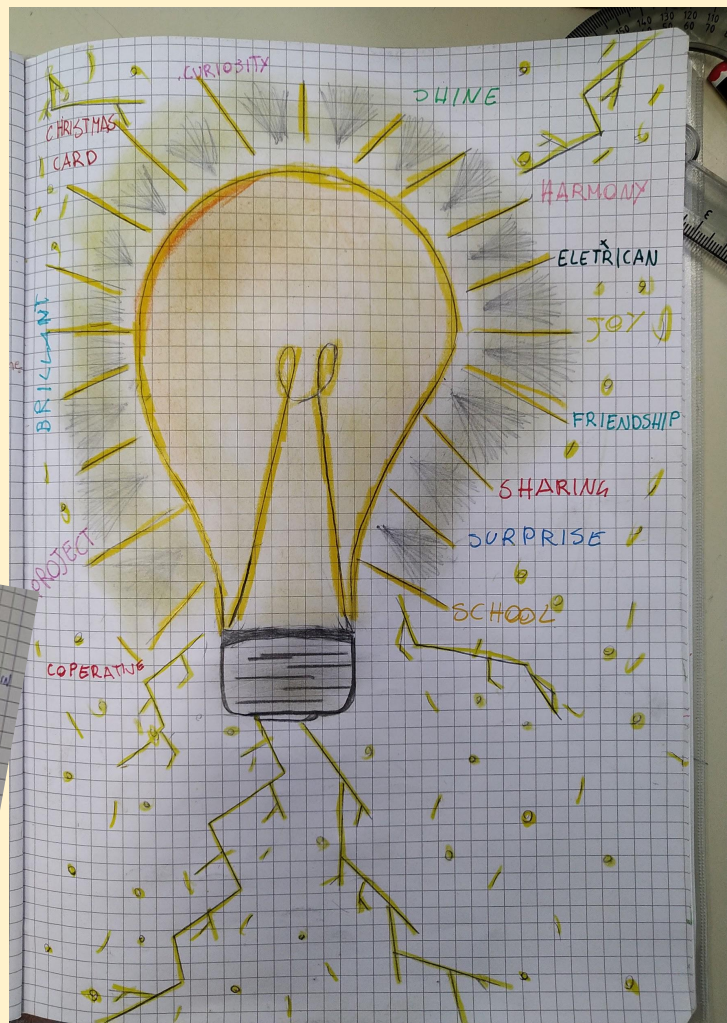 CURIOSITY
SHINE
CHRISTMAS
CARD
HARMONY
ELETRICAN
JOY
BRILLIANT
FRIENDSHIP
SHARING
SURPRISE
PROJECT
SCHOOL
COPERATIVE